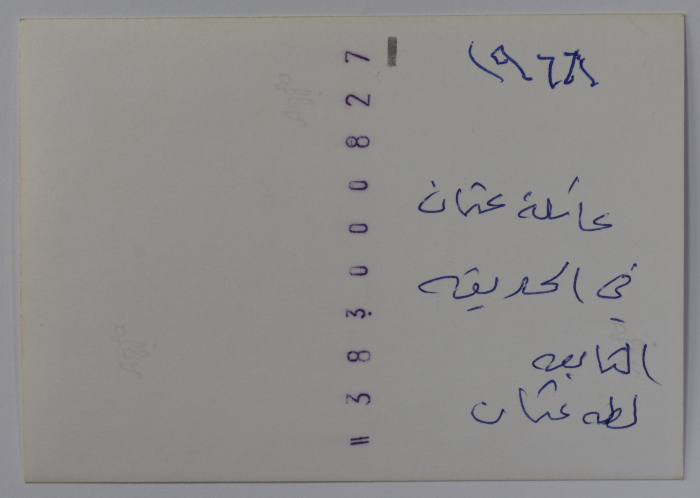 ١٩٦٨
عائلة عثمان
في الحديقه
التابعه
لطه عثمان
= 383000827
Agfa
Agfa